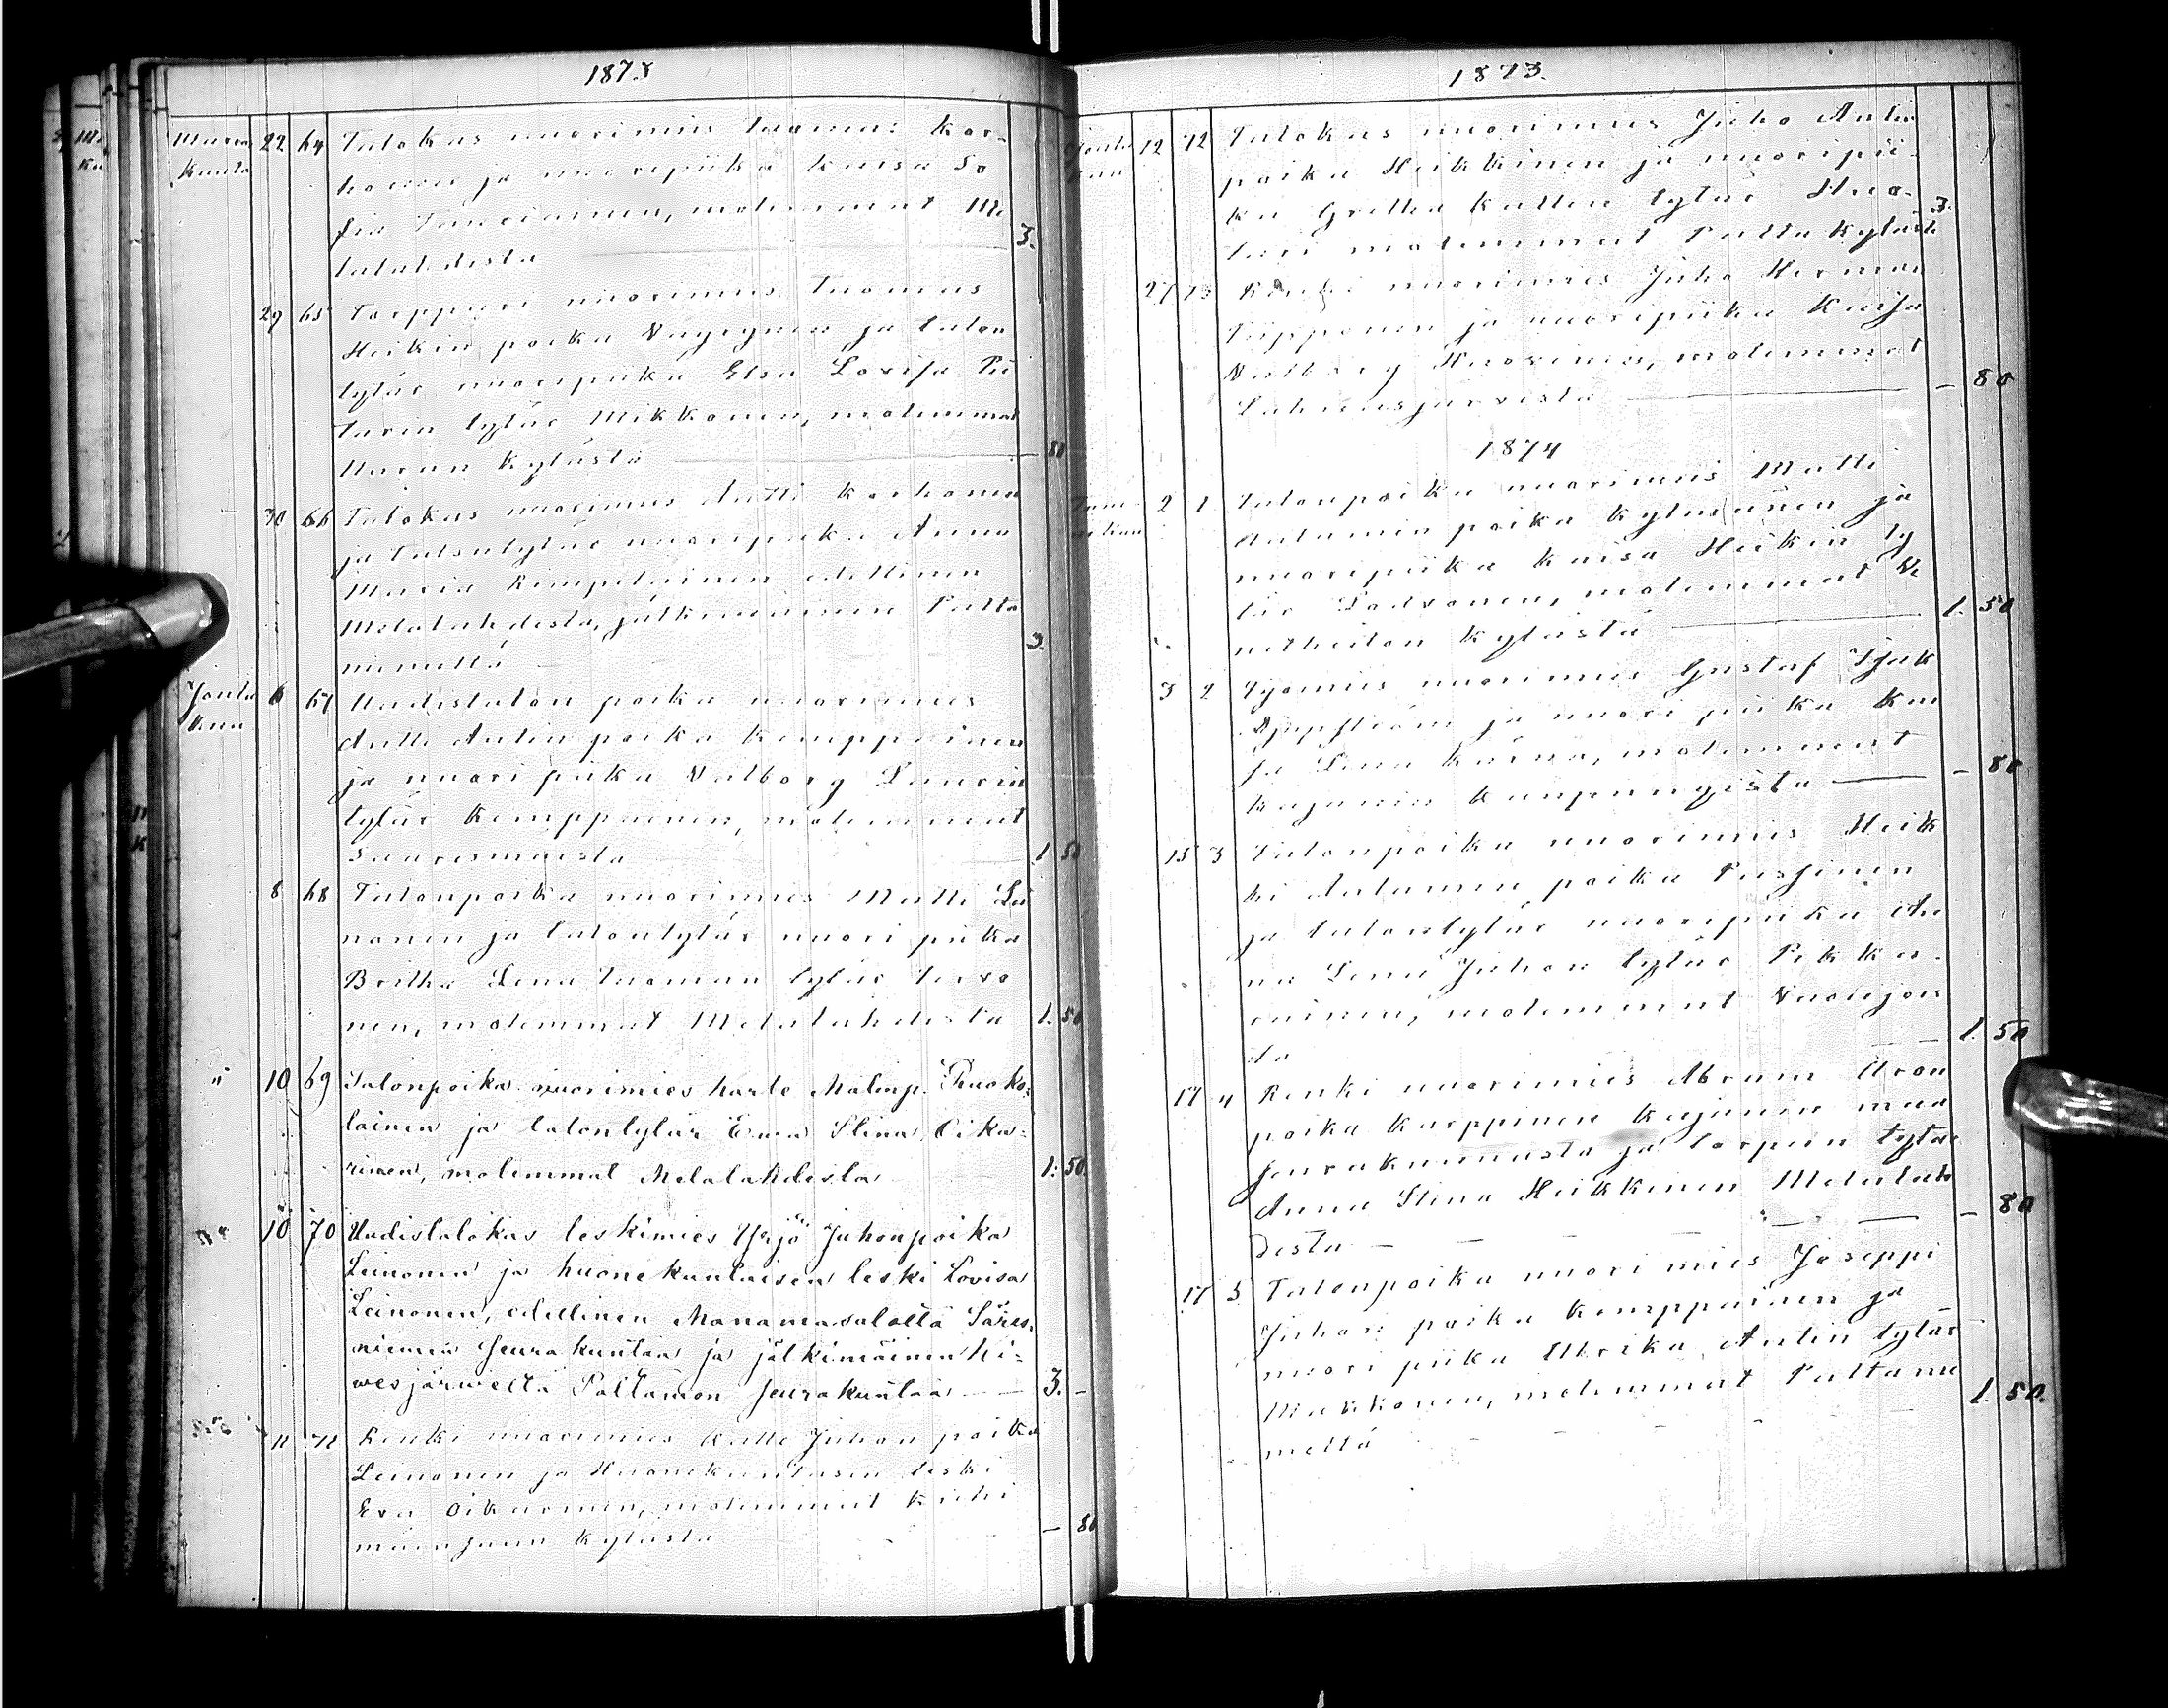 1873
Marras 22 64 Talokas nuorimies Tuomas Kor-
kuuta honen ja nuoripiika Kaisa So
fia Tanciainen, molemmat Me
talahdesta 3.
29 65 Torppari nuorimies Tuomas
Heikin poika Väyrynen ja talon
tytär nuoripiika Elsa Lovisa Pie
tarin tytär Mikkonen, molemmat
Uuran kylästä 80
30 66 Talokas nuorimies Antti Korhonen
ja talontytär nuoripiika Anna
Maria Rimpiläinen edellinen
Melalahdesta, jälkimäinen Palta
niemeltä 3.
Joulu 6 67 Uudistalon poika nuorimies
kuu Antti Antin poika Kemppainen
ja nuori piika Valborg Laurin
tytär Kemppainen, molemmat
Saaresmaesta 1 50
8 68 Talonpoika nuorimies Matti Lei
nonen ja talontytär nuori piika
Britha Lena Tuoman tytär Tervo
nen, molemmat Melalahdesta 1. 50
" 10 69 Talonpoika nuorimies Karle Malmp. Ruoko-
lainen ja talontytär Ewa Stina Oika-
rinen, molemmat Melalahdesta 1: 50
" 10 70 Uudistalokas leskimies Yrjö Juhonpoika
Leinonen ja huonekuntaisen leski Lovisa
Leinonen, edellinen Manamansalolta Säres-
niemen seurakuntaa ja jälkimäinen Ki-
vesjärveltä Paltamon seurakuntaa 3. -
11 71 Renki nuorimies Antti Juhan poika
Leinonen ja Huonekuntasen leski
Eva Oikarinen, molemmat Kiehi
mäenjuun kylästä - 80
1873.
Joulu 12 72 Talokas nuorimies Juho Antin
kuu poika Heikkinen ja nuoripii-
ka Gretha Kattin tytär
molemmat Paltakylästä 3.
27 73 Renki nuorimies Juho Herman
Tripponen ja nuoripiika Kaisa
Valborg Karvinen, molemmat
Lahnasjärvestä - 80
1874
Tam- 2 1 Talonpoika nuorimies Matti
mikuu Antamin poika Kylmänen ja
nuoripiika Kaisa Heikin ty
tär molemmat Ve
netheiton kylästä 1. 50
3 2 Työmies nuorimies Gustaf Isak
ja nuori piika Kai
sa Lena Kärnä, molemmat
Kajanin kaupungista - 80
15 3 Talonpoika nuorimies Heik
ki Antamin poika
ja talontytär nuoripiika An
na Lena Juhon tytär Pikka-
rainen, molemmat Vuolijoe
sta 1. 50
17 4 Renki nuorimies Abram Aron
poika Karppinen Kajanin maa
seurakunnasta ja torpan tytär
Anna Stina Heikkinen Melalah
desta - 80
17 5 Talonpoika nuori mies Joseppi
Juhan poika Kemppainen ja
nuori piika Ulrika Antin tytär
Mikkonen, molemmat Paltanie
meltä 1. 50.